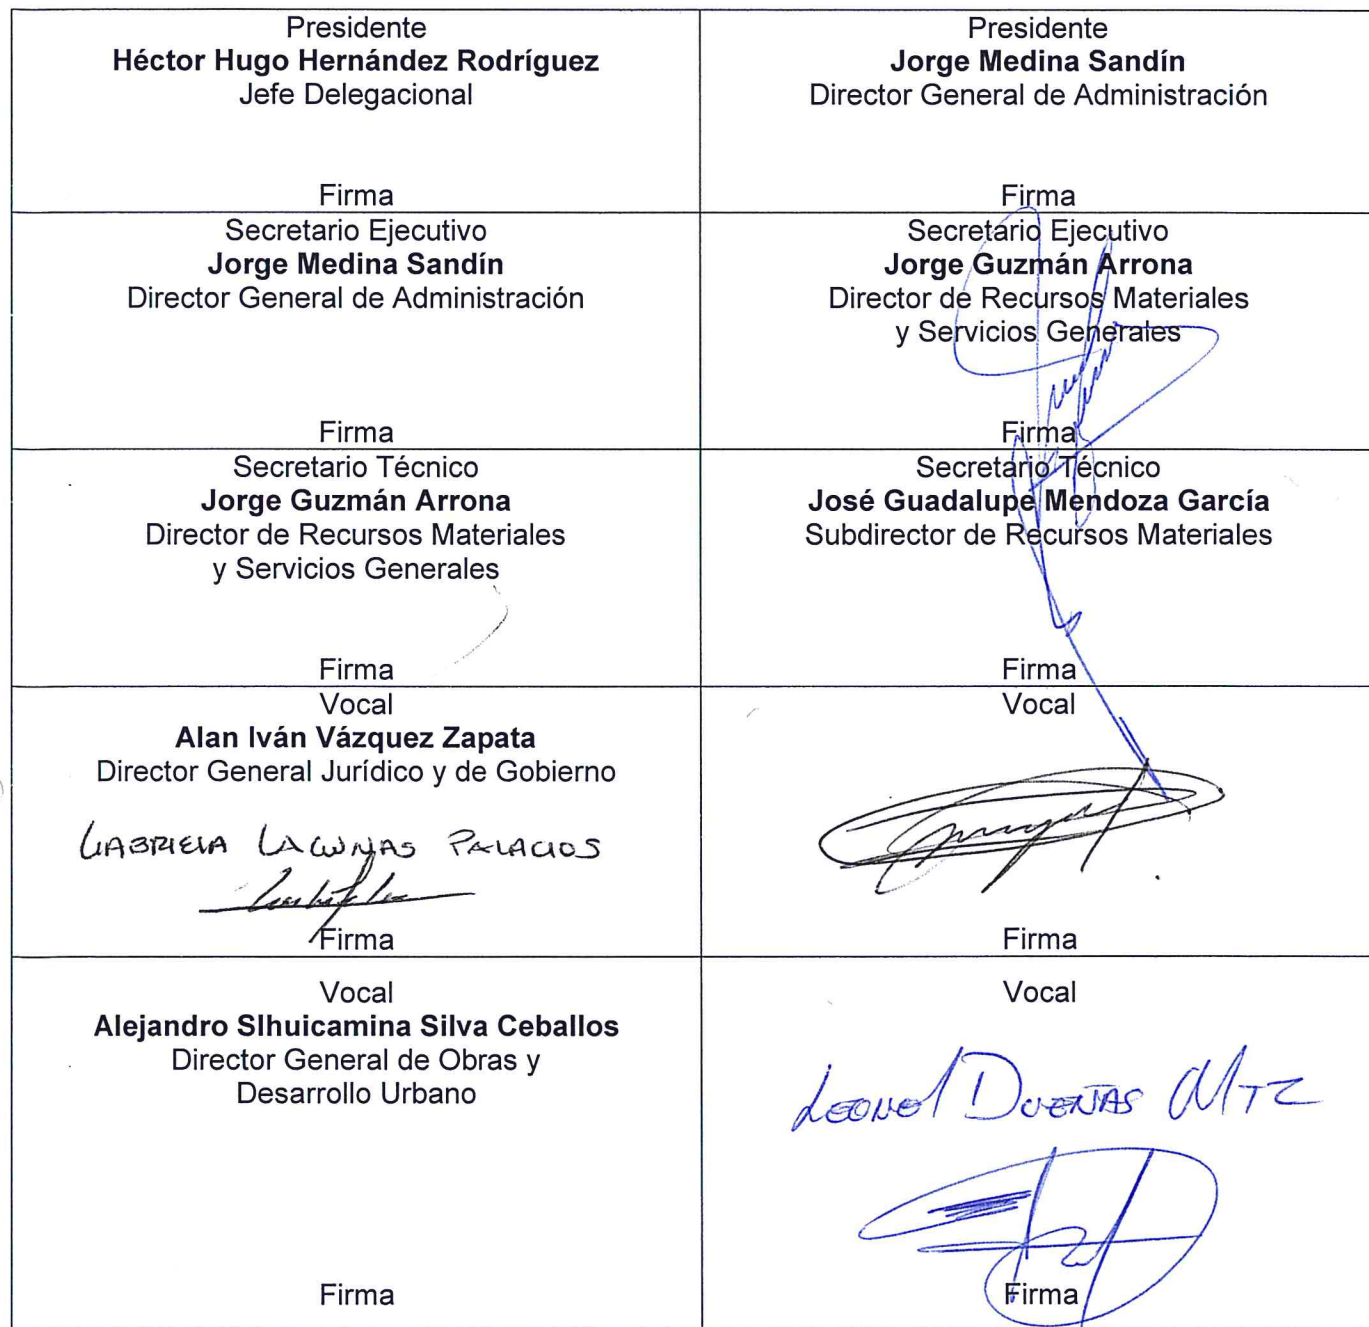 Presidente
Héctor Hugo Hernández Rodríguez
Jefe Delegacional
Firma
Presidente
Jorge Medina Sandín
Director General de Administración
Firma
Secretario Ejecutivo
Jorge Medina Sandín
Director General de Administración
Firma
Secretario Ejecutivo
Jorge Guzmán Arrona
Director de Recursos Materiales
y Servicios Generales
Firma
Secretario Técnico
Jorge Guzmán Arrona
Director de Recursos Materiales
y Servicios Generales
Firma
Secretario Técnico
José Guadalupe Mendoza García
Subdirector de Recursos Materiales
Firma
Vocal
Alan Iván Vázquez Zapata
Director General Jurídico y de Gobierno
GABRIELA LAGUNAS PALACIOS
Firma
Vocal
Firma
Vocal
Alejandro Slhuicamina Silva Ceballos
Director General de Obras y
Desarrollo Urbano
Firma
Vocal
LEONEL DUEÑAS MTZ
Firma